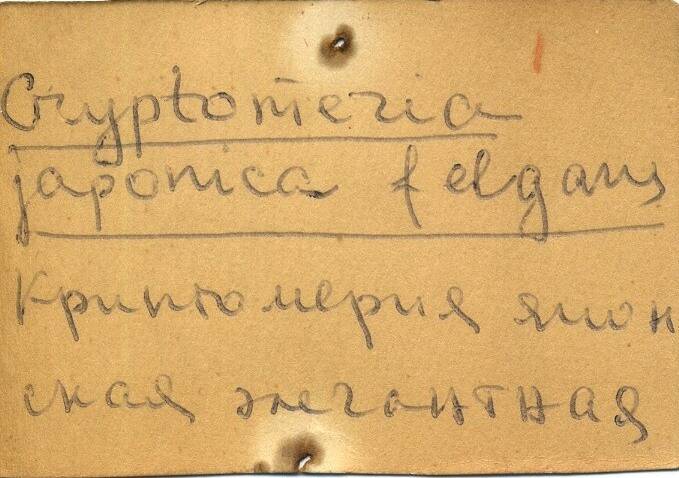 Cryptomeria
japonica f elgans
криптомерия япон
ская элегантная